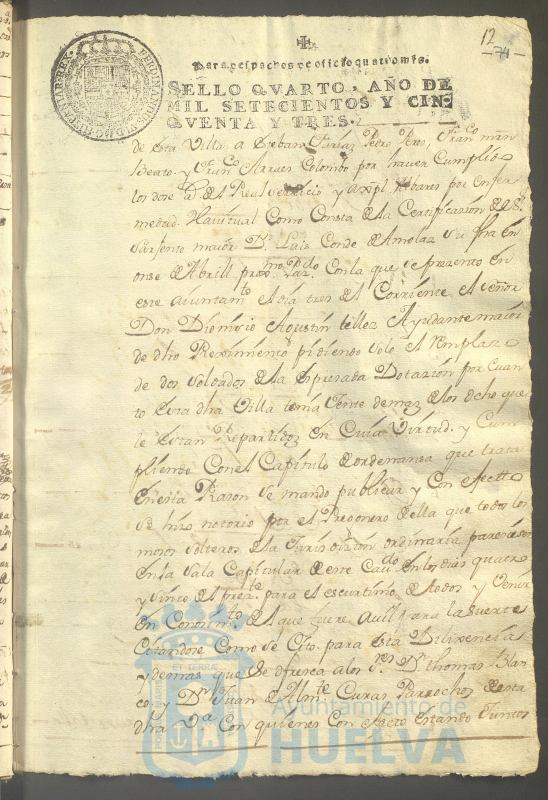 12
74
Para despachos de oficio quatro mrs.
SELLO QVARTO, AÑO DE
MIL SETECIENTOS Y CIN-
QVENTA Y TRES.
de esta Villa, a Esteban Farias Pedro Franco man
Berto y Franco Arraez Colombo por haver Cumplido
los dose a.s de el Real servicio y por enfer
medad Havitual Como Consta de la Certificazion de el S.r
Sarjento maior D.n Luis Conde de su fha en
onse de Abrill pro.mo Pasado Con la que se presento en
este aiuntam.to el dia tres de el Corriente el señor
Don Dionicio Agustin tellez Ayudante maior
de dho Rexim.to pidiendo solo el Remplaze
de dos soldados de la espresada Dotazion por Cuan
to esta dha Villa tenia Veinte de mas de los ocho que
le estan Repartidos En Cuia Virtud, y Cum
pliendo Con el Capitulo de ordenansa que trata
En esta Razon se mando publicar y Con efecto
se hizo notorio por el Pregonero de ella que todos los
mosos solteros de la Jurisdizion ordinaria, pareziesen
en la sala Capitular de este Cau.do En los dias quatro
y sinco de el pres.te para el escrutinio de todos y Venir
en Conosim.to de el que fuere Auil para la suerte
Citandose Como se Cito para esta Dilixencia
y demas que se ofresca a los S.res D.n Thomas Blan
co, y D.n Juan de Curas Parrochos de esta
dha V.a Con quienes Con efecto estando Juntos
PORTUS MARIS ET TERRAE CUSTODIA
Ayuntamiento de
HUELVA